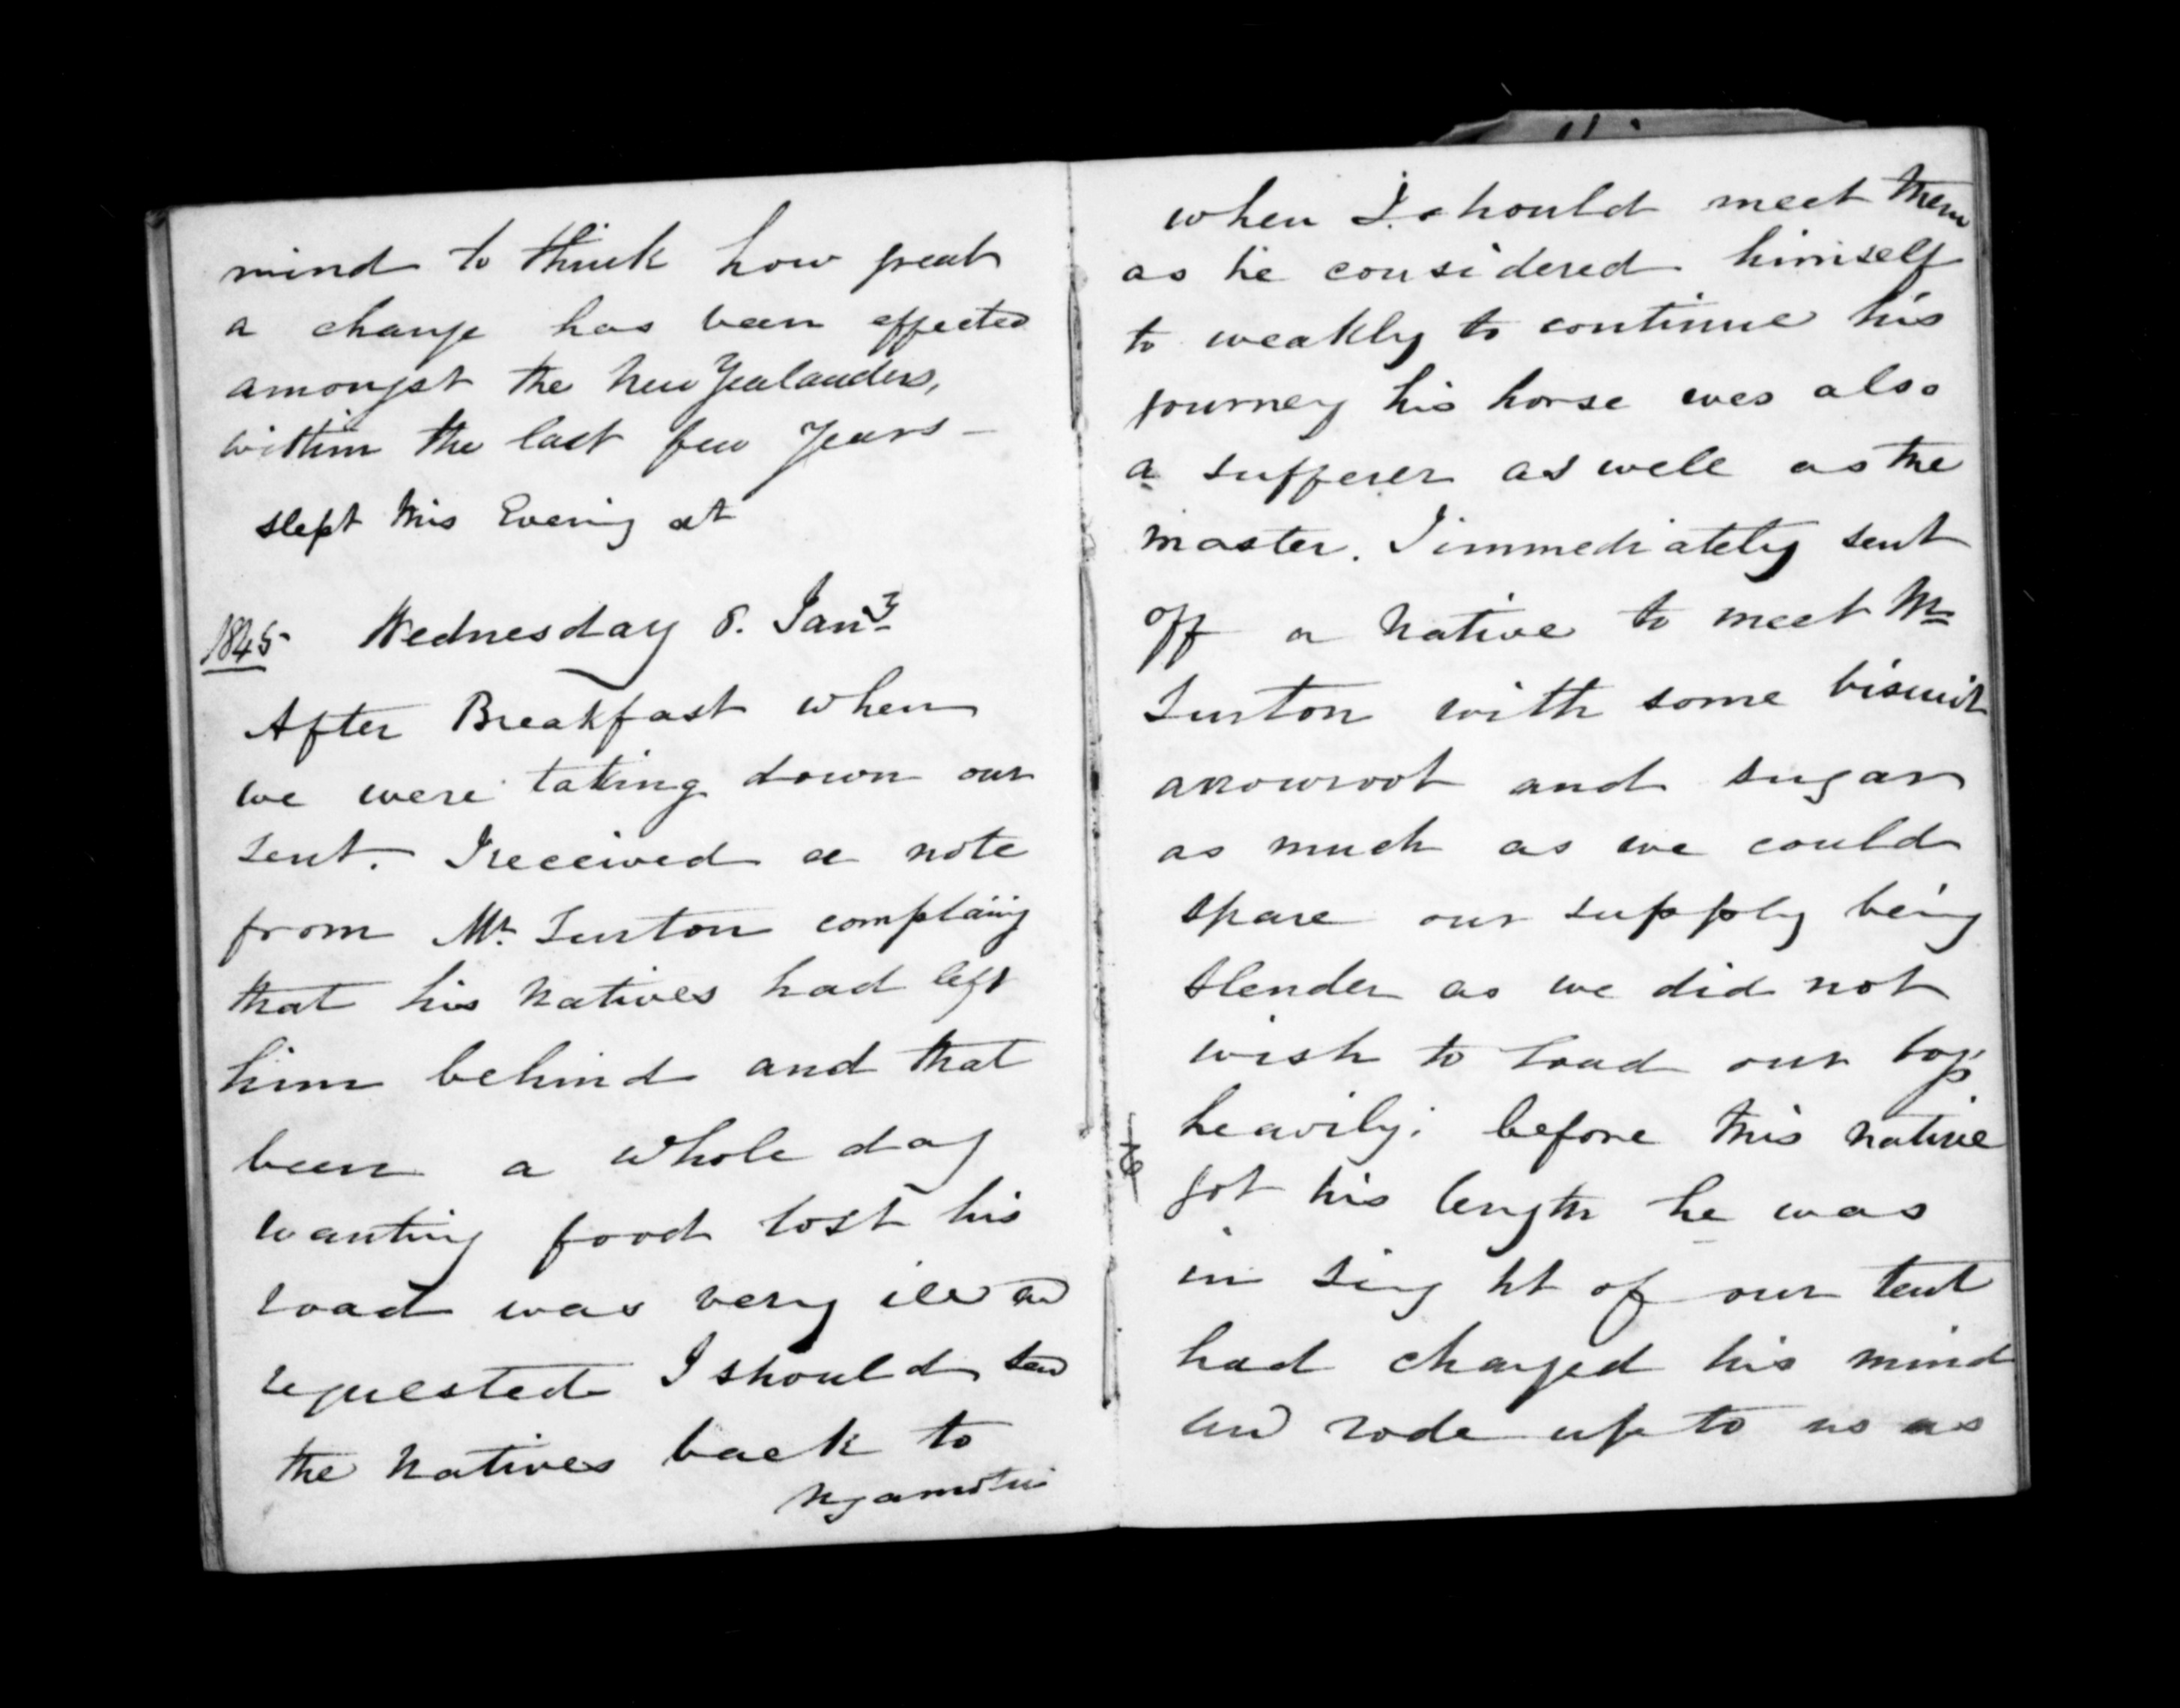 mind to think how great
a change has been effected
amongst the New Zealanders,
within the last few years —
slept this Evening at
1845 Wednesday 8. Jany
After Breakfast when
we were taking down our
tent. I received a note
from Mr. Turton complaiig
that his Natives had left
him behind and that
been a whole day
wanting food lost his
road was very ill and
requested I should send
the Natives back to
Ngamotu
when I should meet them
as he considered himself
to weakly to continue his
journey his horse was also
a sufferer as well as the
master. I immediately sent
off a Native to meet Mr
Turton with some biscuit
arrowroot and sugar
as much as we could
spare our supply being
slender as we did not
wish to load our boys
heavily: before this native
got his length he was
in sing ht of our tent
had changed his mind
and rode up to us as